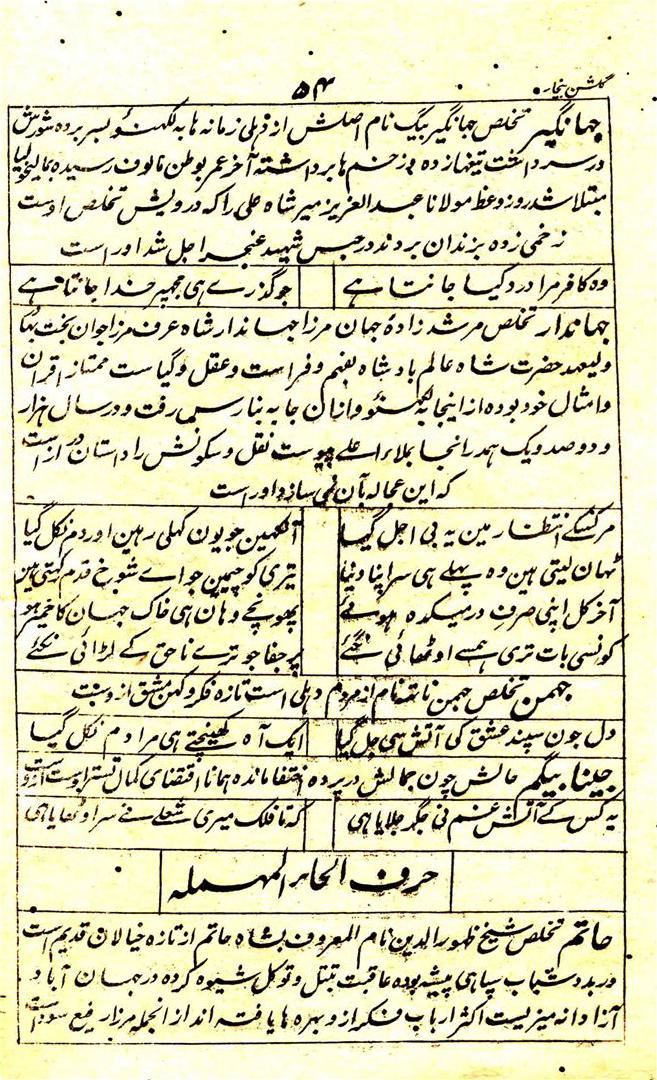 ۵۴
گلشن بیخار
جہانگیر تخلص جہانگیر بیگ نام اصلش از دہلی زمانہ ہا بہ لکھنؤ بسر بردہ شورش
در سر داشت تیغہا زدہ و زخم ہا برداشتہ آخر عمر بوطن مالوف رسیدہ بمالیخولیا
مبتلا شد روز وعظ مولانا عبد العزیز میر شاہ علی را کہ درویش تخلص اوست
زخمی زدہ بزندان بردند در حبس شہید خنجر اجل شد اوراست
وہ کافر مرا درد کیا جانتا ہے
جو گذرے ہی مجھپر خدا جانتا ہے
جہاندار تخلص مرشد زادۂ جہان مرزا جہاندار شاہ عرف مرزا جوان بخت بہا
ولیعہد حضرت شاہ عالم بادشاہ بفہم و فراست و عقل و گیاست ممتاز اقران
و امثال خود بودہ از اینجا بہ لکھنؤ و ازان جا بہ بنارس رفت و در سال ہزار
و دو صد و یک ہمدرانجا بملاء اعلے پیوست نقل و سکونش را داستان دراز است
کہ این عجالہ بآن نمی سازد اوراست
مر گئے انتظار مین یہ بی اجل گیا
آنکھین جو یون کھلی رہین اور دم نکل گیا
ٹھان لیتی ہین وہ پہلے ہی سر اپنا دنیا
تیری کوچہین جو اے شوخ قدم کہتی ہین
آخر گل اپنی صرف در میکدہ ہوئے
پہونچے وہان ہی خاک جہان کا خمیر ہو
کونسی بات تری ہمسے اوٹھائی نگئے
پر جفا جو ترے ناحق کے لڑائی نگئے
جہمن تخلص جہمن ناتھ نام از مردم دہلی است تازہ فکر و کہن مشق ازوست
دل جون سپند عشق کی آتش ہی جل گیا
ایک آہ کھینچتے ہی مرا دم نکل گیا
جینا بیگم حالش چون جمالش در پردہ اختفا ماندہ ہمانا اقتضای کمال تستر بوست ازوست
یہ کس کے آتش غم نی جگر جلایا ہی
کہ تا فلک میری شعلے نے سر اوٹھایا ہی
حرف الحاء المہملہ
حاتم تخلص شیخ ظہور الدین نام المعروف بشاہ حاتم از تازہ خیالان قدیم است
در بدو شباب سپاہی پیشہ بودہ عاقبت تبتل و توکل شیوہ کردہ در جہان آباد
آزادانہ میزیست اکثر ارباب فکر ازو بہرہ ہا یافتہ اند از انجملہ مرزا رفیع سودا است